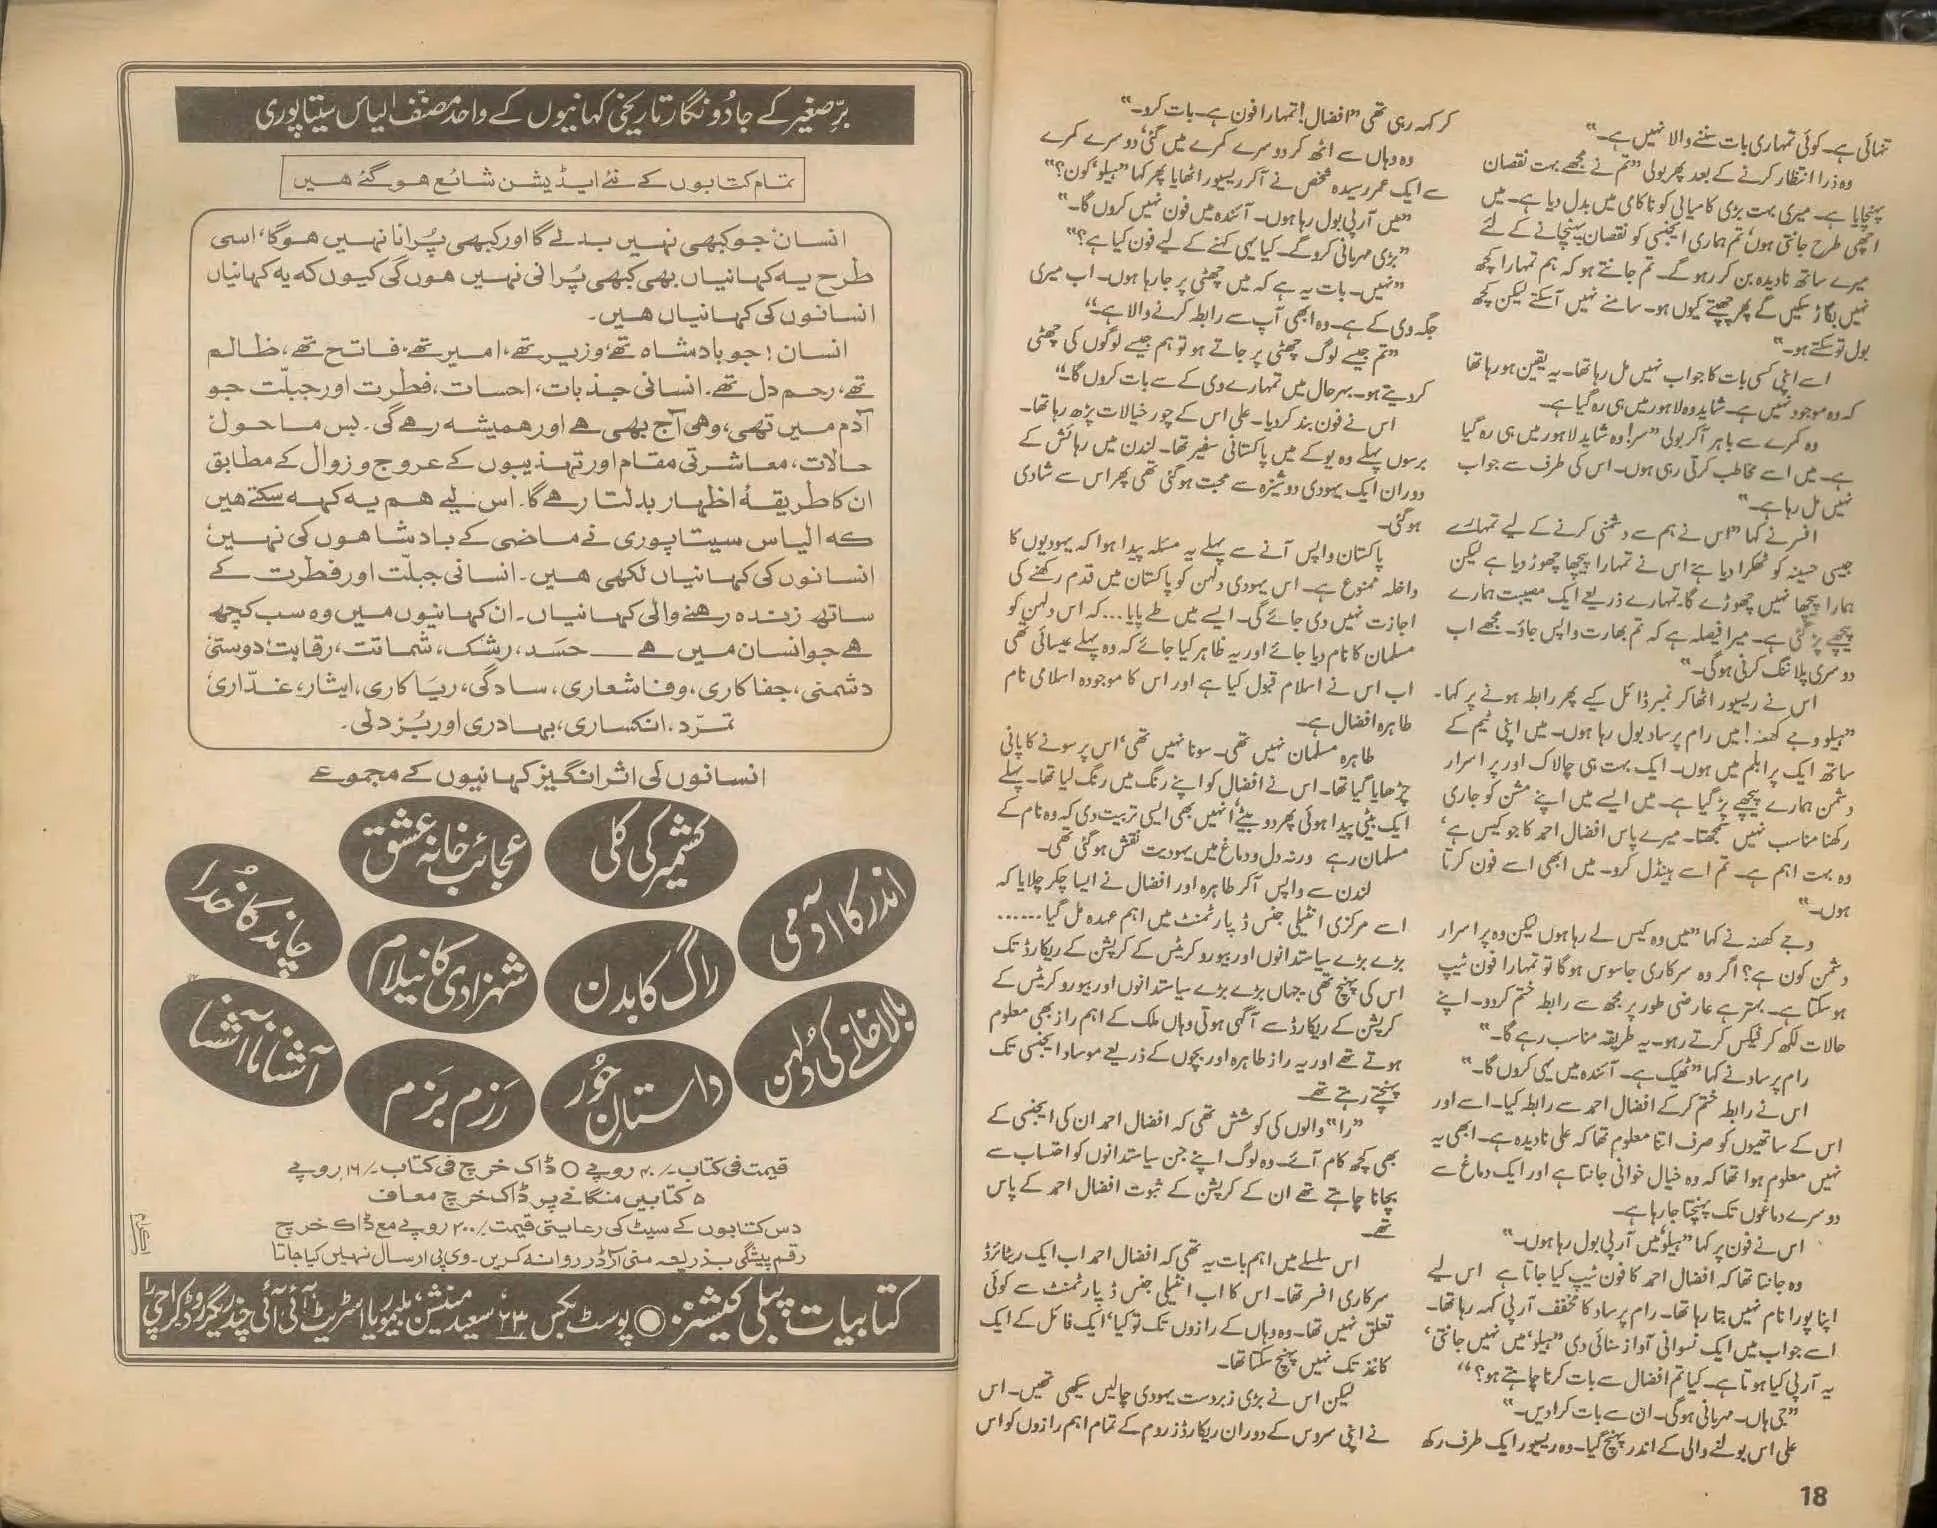 تنہائی ہے۔ کوئی تمہاری بات سننے والا نہیں ہے۔"
وہ ذرا انتظار کرنے کے بعد پھر بولی "تم نے مجھے بہت نقصان
پہنچایا ہے۔ میری بہت بڑی کامیابی کو ناکامی میں بدل دیا ہے۔ میں
اچھی طرح جانتی ہوں، تم ہماری ایجنسی کو نقصان پہنچانے کے لئے
میرے ساتھ نادیدہ بن کر رہو گے۔ تم جانتے ہو کہ ہم تمہارا کچھ
نہیں بگاڑ سکیں گے پھر چھپتے کیوں ہو۔ سامنے نہیں آ سکتے لیکن کچھ
بول تو سکتے ہو۔"
اسے اپنی کسی بات کا جواب نہیں مل رہا تھا۔ یہ یقین ہو رہا تھا
کہ وہ موجود نہیں ہے۔ شاید وہ لاہور میں ہی رہ گیا ہے۔
وہ کمرے سے باہر آ کر بولی "سر! وہ شاید لاہور میں ہی رہ گیا
ہے۔ میں اسے مخاطب کرتی رہی ہوں۔ اس کی طرف سے جواب
نہیں مل رہا ہے۔"
افسر نے کہا "اس نے ہم سے دشمنی کرنے کے لیے تمہارے
جیسی حسینہ کو ٹھکرا دیا ہے، اس نے تمہارا پیچھا چھوڑ دیا ہے لیکن
ہمارا پیچھا نہیں چھوڑے گا۔ تمہارے ذریعے ایک مصیبت ہمارے
پیچھے پڑ گئی ہے۔ میرا فیصلہ ہے کہ تم بھارت واپس جاؤ۔ مجھے اب
دوسری پلاننگ کرنی ہوگی۔"
اس نے ریسیور اٹھا کر نمبر ڈائل کیے پھر رابطہ ہونے پر کہا۔
"ہیلو وجے کھنہ! میں رام پرساد بول رہا ہوں۔ میں اپنی ٹیم کے
ساتھ ایک پرابلم میں ہوں۔ ایک بہت ہی چالاک اور پراسرار
دشمن ہمارے پیچھے پڑ گیا ہے۔ میں ایسے میں اپنے مشن کو جاری
رکھنا مناسب نہیں سمجھتا۔ میرے پاس افضال احمد کا جو کیس ہے،
وہ بہت اہم ہے۔ تم اسے ہینڈل کرو۔ میں ابھی اسے فون کرتا
ہوں۔"
وجے کھنہ نے کہا "میں وہ کیس لے رہا ہوں لیکن وہ پراسرار
دشمن کون ہے؟ اگر وہ سرکاری جاسوس ہوگا تو تمہارا فون ٹیپ
ہو سکتا ہے۔ بہتر ہے عارضی طور پر مجھ سے رابطہ ختم کر دو۔ اپنے
حالات لکھ کر فیکس کرتے رہو۔ یہ طریقہ مناسب رہے گا۔"
رام پرساد نے کہا "ٹھیک ہے۔ آئندہ میں یہی کروں گا۔"
اس نے رابطہ ختم کر کے افضال احمد سے رابطہ کیا۔ اسے اور
اس کے ساتھیوں کو صرف اتنا معلوم تھا کہ علی نادیدہ ہے۔ ابھی یہ
نہیں معلوم ہوا تھا کہ وہ خیال خوانی جانتا ہے اور ایک دماغ سے
دوسرے دماغوں تک پہنچتا جا رہا ہے۔
اس نے فون پر کہا "ہیلو، میں آر پی بول رہا ہوں۔"
وہ جانتا تھا کہ افضال احمد کا فون ٹیپ کیا جاتا ہے اس لیے
اپنا پورا نام نہیں بتا رہا تھا۔ رام پرساد کا مخفف آر پی کہہ رہا تھا۔
اسے جواب میں ایک نسوانی آواز سنائی دی "ہیلو، میں نہیں جانتی،
یہ آر پی کیا ہوتا ہے۔ کیا تم افضال سے بات کرنا چاہتے ہو؟"
"جی ہاں۔ مہربانی ہوگی۔ ان سے بات کرا دیں۔"
علی اس بولنے والی کے اندر پہنچ گیا۔ وہ ریسیور ایک طرف رکھ
18
کر کہہ رہی تھی "افضال! تمہارا فون ہے۔ بات کرو۔"
وہ وہاں سے اٹھ کر دوسرے کمرے میں گئی، دوسرے کمرے
سے ایک عمر رسیدہ شخص نے آ کر ریسیور اٹھایا پھر کہا "ہیلو، کون؟"
"میں آر پی بول رہا ہوں۔ آئندہ میں فون نہیں کروں گا۔"
"بڑی مہربانی کرو گے۔ کیا یہی کہنے کے لیے فون کیا ہے؟"
"نہیں۔ بات یہ ہے کہ میں چھٹی پر جا رہا ہوں۔ اب میری
جگہ وی کے ہے۔ وہ ابھی آپ سے رابطہ کرنے والا ہے۔"
"تم جیسے لوگ چھٹی پر جاتے ہو تو ہم جیسے لوگوں کی چھٹی
کر دیتے ہو۔ بہرحال میں تمہارے وی کے سے بات کروں گا۔"
اس نے فون بند کر دیا۔ علی اس کے چور خیالات پڑھ رہا تھا۔
برسوں پہلے وہ یو کے میں پاکستانی سفیر تھا۔ لندن میں رہائش کے
دوران ایک یہودی دوشیزہ سے محبت ہو گئی تھی پھر اس سے شادی
ہو گئی۔
پاکستان واپس آنے سے پہلے یہ مسئلہ پیدا ہوا کہ یہودیوں کا
داخلہ ممنوع ہے۔ اس یہودی دلہن کو پاکستان میں قدم رکھنے کی
اجازت نہیں دی جائے گی۔ ایسے میں طے پایا... کہ اس دلہن کو
مسلمان کا نام دیا جائے اور یہ ظاہر کیا جائے کہ وہ پہلے عیسائی تھی
اب اس نے اسلام قبول کیا ہے اور اس کا موجودہ اسلامی نام
طاہرہ افضال ہے۔
طاہرہ مسلمان نہیں تھی۔ سونا نہیں تھی، اس پر سونے کا پانی
چڑھایا گیا تھا۔ اس نے افضال کو اپنے رنگ میں رنگ لیا تھا۔ پہلے
ایک بیٹی پیدا ہوئی پھر دو بیٹے، انہیں بھی ایسی تربیت دی کہ وہ نام کے
مسلمان رہے ورنہ دل و دماغ میں یہودیت نقش ہو گئی تھی۔
لندن سے واپس آ کر طاہرہ اور افضال نے ایسا چکر چلایا کہ
اسے مرکزی انٹیلی جنس ڈپارٹمنٹ میں اہم عہدہ مل گیا......
بڑے بڑے سیاستدانوں اور بیوروکریٹس کے کرپشن کے ریکارڈ تک
اس کی پہنچ تھی۔ جہاں بڑے بڑے سیاستدانوں اور بیوروکریٹس کے
کرپشن کے ریکارڈ سے آگہی ہوتی وہاں ملک کے اہم راز بھی معلوم
ہوتے تھے اور یہ راز طاہرہ اور بچوں کے ذریعے موساد ایجنسی تک
پہنچتے رہتے تھے۔
"را" والوں کی کوشش تھی کہ افضال احمد ان کی ایجنسی کے
بھی کچھ کام آئے۔ وہ لوگ اپنے جن سیاستدانوں کو احتساب سے
بچانا چاہتے تھے ان کے کرپشن کے ثبوت افضال احمد کے پاس
تھے۔
اس سلسلے میں اہم بات یہ تھی کہ افضال احمد اب ایک ریٹائرڈ
سرکاری افسر تھا۔ اس کا اب انٹیلی جنس ڈپارٹمنٹ سے کوئی
تعلق نہیں تھا۔ وہ وہاں کے رازوں تک تو کیا، ایک فائل کے ایک
کاغذ تک نہیں پہنچ سکتا تھا۔
لیکن اس نے بڑی زبردست یہودی چالیں سیکھی تھیں۔ اس
نے اپنی سروس کے دوران ریکارڈ روم کے تمام اہم رازوں کو اس
برِّصغیر کے جادُو نگار تاریخی کہانیوں کے واحد مصنّف الیاس سیتا پوری
تمام کتابوں کے نئے ایڈیشن شائع ہو گئے ہیں
انسان، جو کبھی نہیں بدلے گا اور کبھی پُرانا نہیں ہوگا، اسی
طرح یہ کہانیاں بھی کبھی پُرانی نہیں ہوں گی کیوں کہ یہ کہانیاں
انسانوں کی کہانیاں ہیں۔
انسان! جو بادشاہ تھے، وزیر تھے، امیر تھے، فاتح تھے، ظالم
تھے، رحم دل تھے۔ انسانی جذبات، احسات، فطرت اور جبلّت جو
آدم میں تھی، وہی آج بھی ہے اور ہمیشہ رہے گی۔ بس ماحول،
حالات، معاشرتی مقام اور تہذیبوں کے عروج و زوال کے مطابق
ان کا طریقۂ اظہار بدلتا رہے گا۔ اس لیے ہم یہ کہہ سکتے ہیں
کہ الیاس سیتا پوری نے ماضی کے بادشاہوں کی نہیں،
انسانوں کی کہانیاں لکھی ہیں۔ انسانی جبلّت اور فطرت کے
ساتھ زندہ رہنے والی کہانیاں۔ ان کہانیوں میں وہ سب کچھ
ہے جو انسان میں ہے — حسَد، رشک، شماتت، رقابت، دوستی،
دشمنی، جفاکاری، وفاشعاری، سادگی، ریَاکاری، ایثار، غدّاری،
تمرّد، انکساری، بہادری اور بُزدلی۔
انسانوں کی اثر انگیز کہانیوں کے مجموعے
کشمیر کی کلی
عجائب خانۂ عشق
اندر کا آدمی
چاند کا خُدا
راگ کا بدن
شہزادی کا نیلام
بالاخانے کی دُلہن
آشنا نا آشنا
داستانِ حُور
رَزم بَزم
قیمت فی کتاب -/۴۰ روپے ○ ڈاک خرچ فی کتاب -/۱۶ روپے
۵ کتابیں منگانے پر ڈاک خرچ معاف
دس کتابوں کے سیٹ کی رعایتی قیمت -/۳۰۰ روپے مع ڈاک خرچ
رقم پیشگی بذریعہ منی آرڈر روانہ کریں۔ وی پی ارسال نہیں کیا جاتا
کتابیات پبلی کیشنز ● پوسٹ بکس ۲۳، سعید منشن، بلیموریا اسٹریٹ، آئی آئی چندریگر روڈ، کراچی ۱